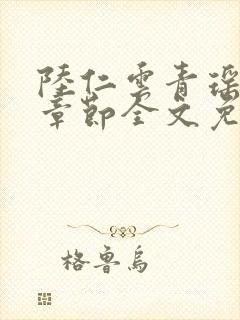 陸仁雲青瑶
章節全文免
格魯烏